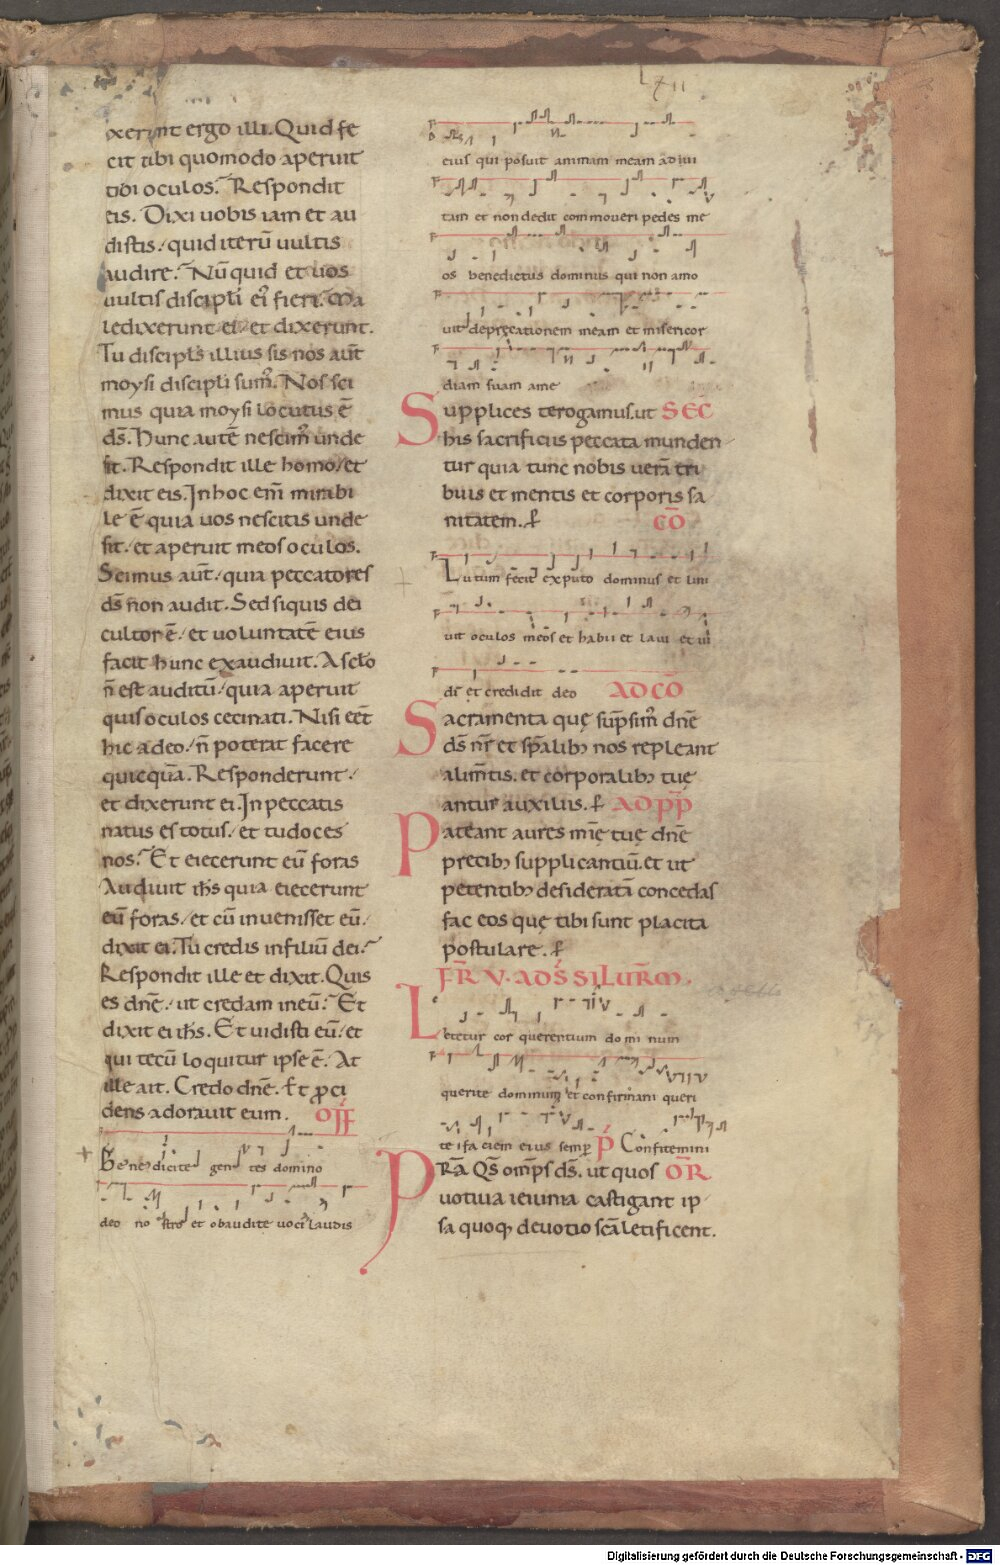 LXII
xerunt ergo illi. Quid fe
cit tibi quomodo aperuit
tibi oculos. Respondit
eis. Dixi uobis iam et au
distis. quid iterū uultis
audire. Nūquid et uos
uultis discipłi ei fieri. Ma
ledixerunt ei. et dixerunt.
Tu discipłs illius sis nos aūt
moysi discipłi sum᷒. Nos sci
mus quia moysi locutus ē
ds̄. Hunc autē nescim᷒ unde
sit. Respondit ille homo. et
dixit eis. In hoc em̄ mirabi
le ē quia uos nescitis unde
sit. et aperuit meos oculos.
Scimus aūt. quia peccatores
ds̄ non audit. Sed siquis dei
cultor ē. et uoluntatē eius
facit hunc exaudiuit. A scło
n̄ est auditū. quia aperuit
quis oculos cecinati. Nisi eēt
hic a deo. n̄ poterat facere
quicquā. Responderunt.
et dixerunt ei. In peccatis
natus es totus. et tu doces
nos. Et eiecerunt eū foras
Audiuit ih̄s quia eiecerunt
eū foras. et cū inuenisset eū.
dixit ei. Tu credis in filiū dei.
Respondit ille et dixit. Quis
es dn̄e. ut credam in eū. Et
dixit ei ih̄s. Et uidisti eū. et
qui tecū loquitur ipse ē. At
ille ait. Credo dn̄e. Et ꝓci
dens adorauit eum. OFF
Benedicite gentes domino
deo nostro et obaudite uocē laudis
eius qui posuit animam meam ad uı
tam et non dedit commoueri pedes me
os benedictus dominus qui non amo
uit deprecationem meam et misericor
diam suam ame
Supplices te rogamus. ut SEC̄
his sacrificiis peccata munden
tur quia tunc nobis uerā tri
buis et mentis et corporis sa
nitatem. ꝑ CŌ
Lutum fecit exputo dominus et lini
uit oculos meos et habii et laui et ui
di et credidit deo AD CŌ
Sacramenta quę sūpsim᷒ dn̄e
ds̄ nr̄ et sp̄alib; nos repleant
alim̄tis. et corporalib; tuę
antur auxiliis. ꝑ AD PP̄
Pateant aures mīę tuę dn̄e
precib; supplicantiū. et ut
petentib; desideratā concedas
fac eos quę tibi sunt placita
postulare. ꝑ
FR̄ V. AD S̄ SILUR̄M.
Letetur cor querentium dominum
querite dominum et confirmani queri
te ifaciem eius semp̱ P̄ Confitemini
PRĀ QS̄ omp̄s ds̄. ut quos OR̄
uotiua ieiunia castigant ip
sa quoq; deuotio scā letificent.
Digitalisierung gefördert durch die Deutsche Forschungsgemeinschaft - DFG